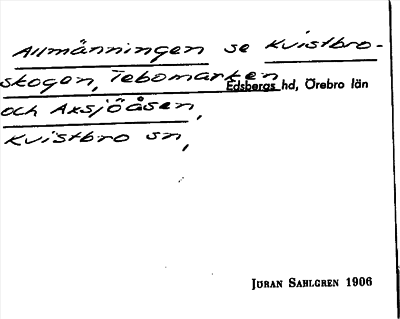 Allmänningen se Kvistbro-
skogen, Tebomarken
Edsbergs hd, Örebro län
och Axsjöåsen,
Kvistbro sn,
JÖRAN SAHLGREN 1906